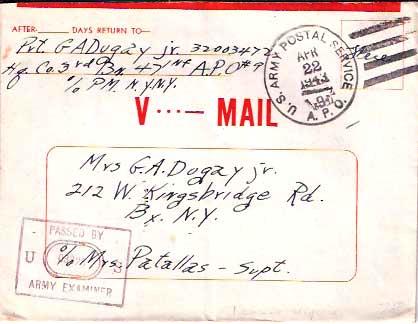 AFTER ______ DAYS RETURN TO—
Pvt. G A Dugay jr. 32003477
Hq. Co. 3rd Bn. 47 Inf A.P.O. #9
% P.M. N.Y. N.Y.
U.S. ARMY POSTAL SERVICE
APR
22
1943
A.P.O.
Free
V···— MAIL
Mrs G.A. Dugay jr.
212 W. Kingsbridge Rd.
Bx. N.Y.
% Mrs. Patallas - Supt.
PASSED BY
U S
ARMY EXAMINER